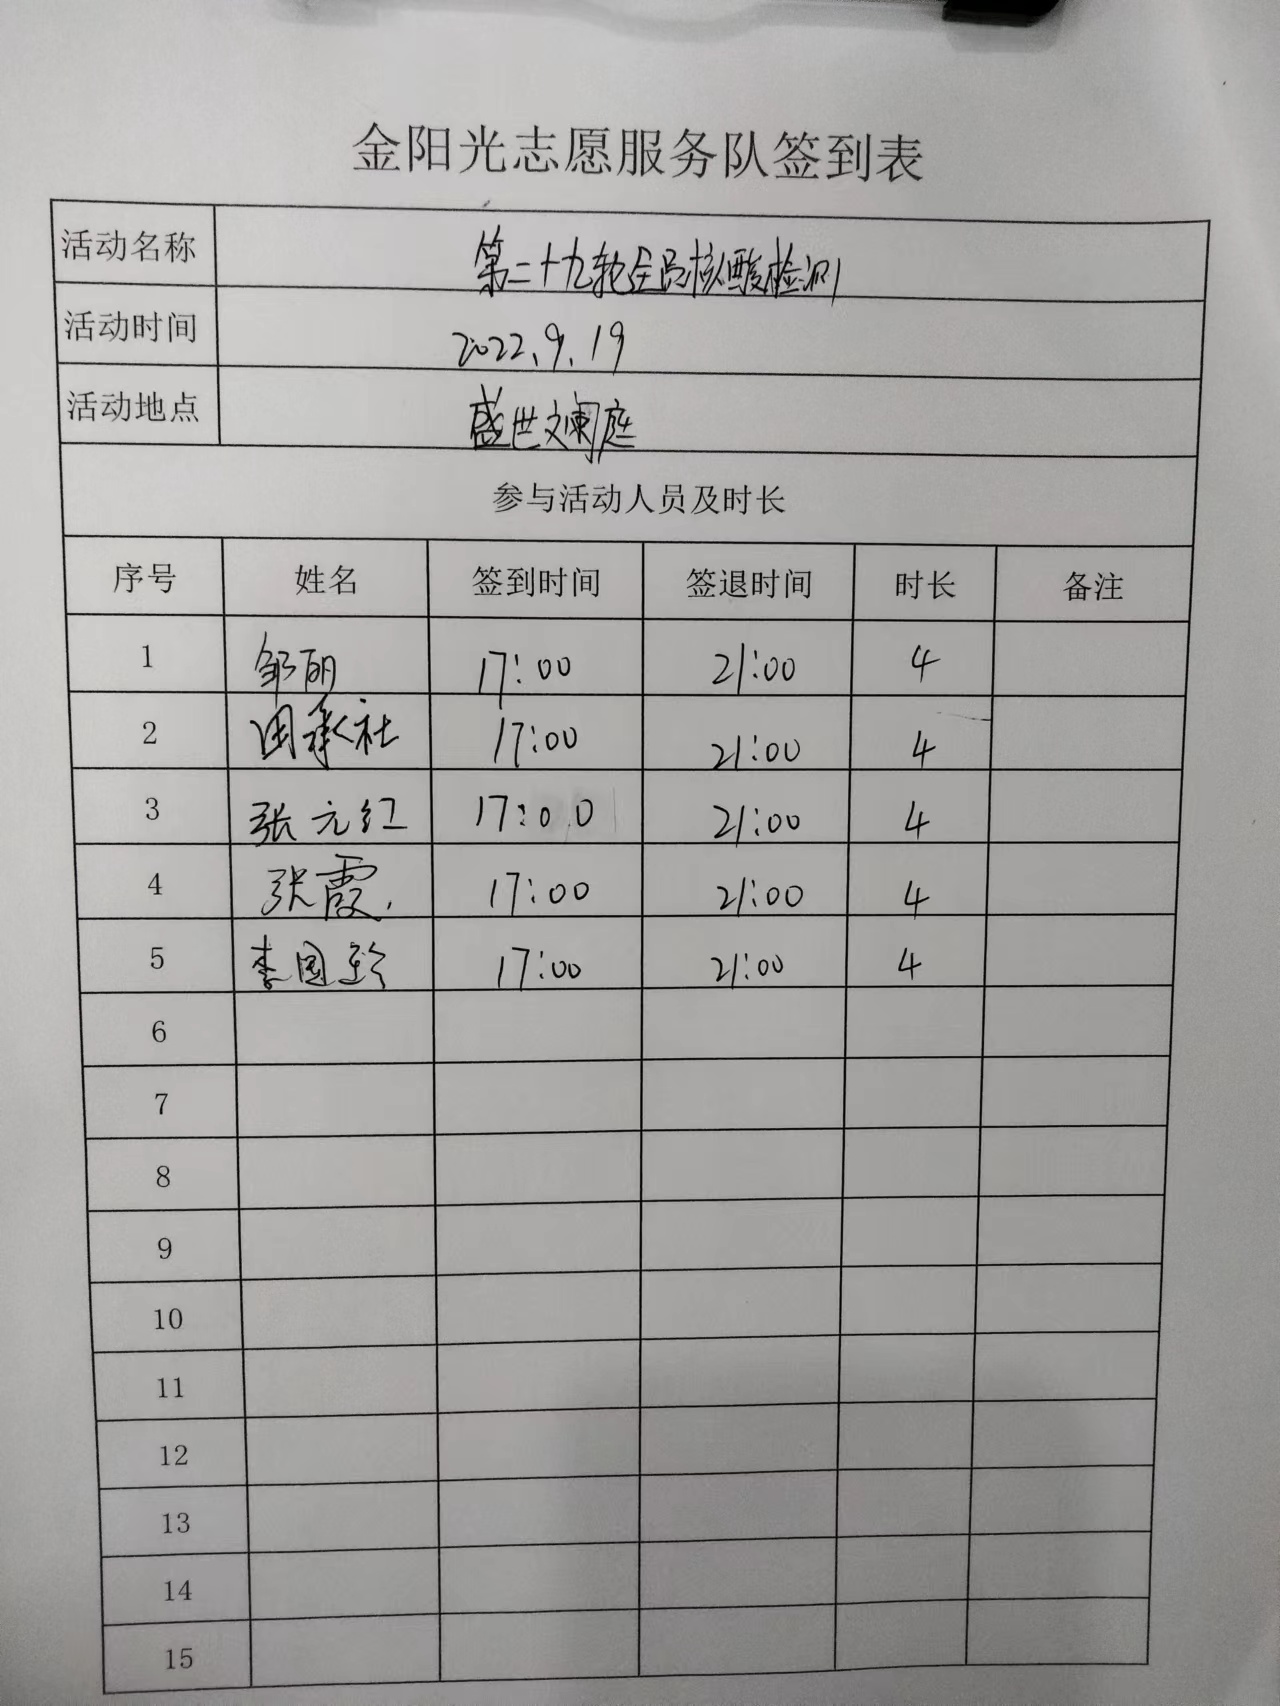 金阳光志愿服务队签到表
活动名称 第二十九轮全员核酸检测
活动时间 2022.9.19
活动地点 盛世文阑庭
参与活动人员及时长
序号 姓名 签到时间 签退时间 时长 备注
1 邹丽 17:00 21:00 4
2 田承社 17:00 21:00 4
3 张元红 17:00 21:00 4
4 张霞 17:00 21:00 4
5 李国玲 17:00 21:00 4
6
7
8
9
10
11
12
13
14
15